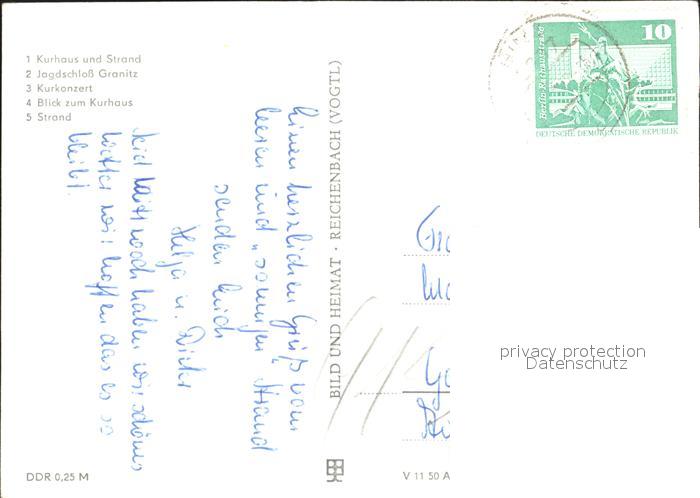 1 Kurhaus und Strand
2 Jagdschloß Granitz
3 Kurkonzert
4 Blick zum Kurhaus
5 Strand
Einen herzlichen Gruß vom
leeren und "sonnigen" Strand
senden Euch
Helga u.
Seit haben wir schönes
Wetter wir hoffen das es so
bleibt.
BILD UND HEIMAT · REICHENBACH (VOGTL)
Berlin-Rathausstraße
10
DEUTSCHE DEMOKRATISCHE REPUBLIK
privacy protection
Datenschutz
DDR 0,25 M
V 11 50 A